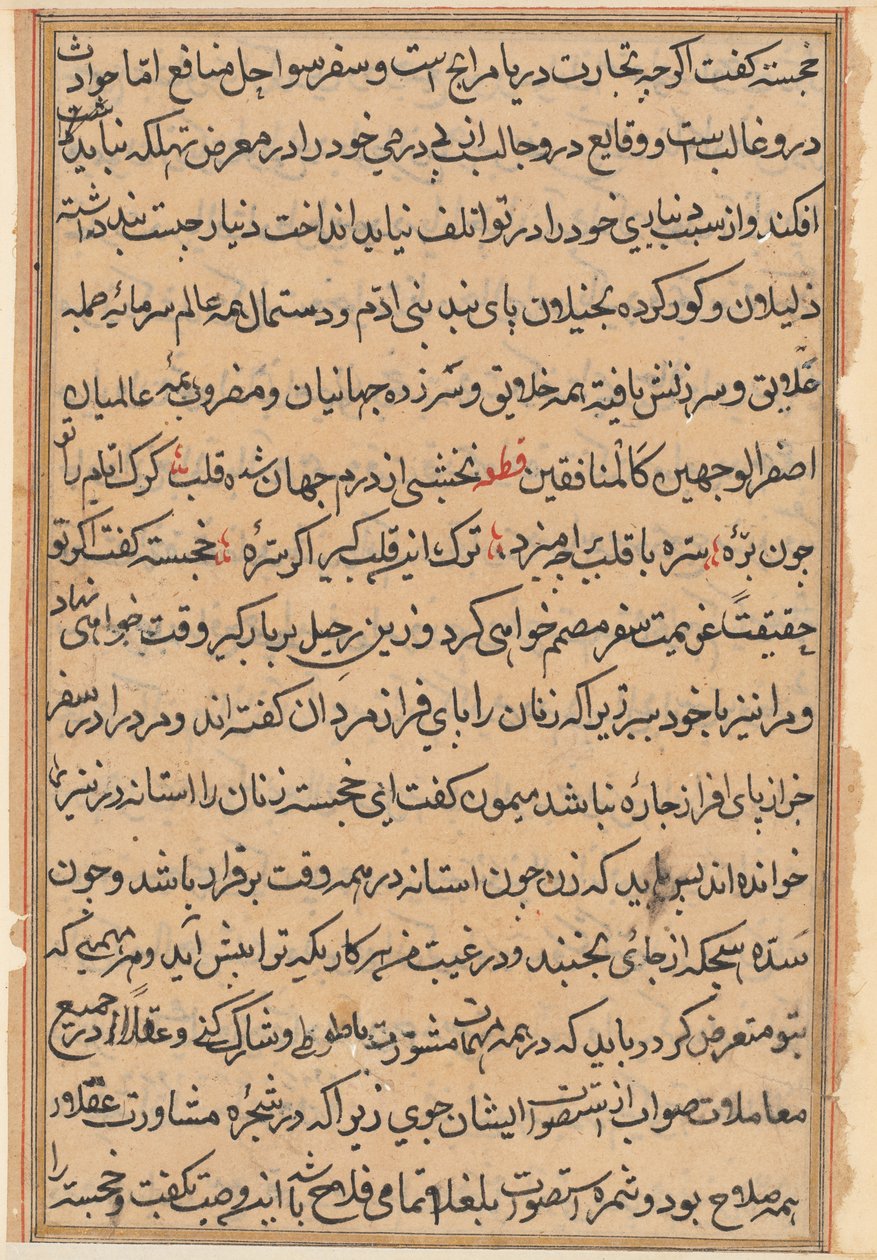 خجسته کفت اکرچه تجارت دریا مرابح است و سفر سواحل منافع امّا حوادث
درو غالب است و وقایع درو جالب از پی درمی خود را در معرض تهلکه نباید
افکند و از سبب دیناری خود را در تلف نباید انداخت دنیار چیست بند داشته
ذلیلان و کور کرده بخیلان پای بند بنی ادّم و دستمال همه عالم سرمایۀ جمله
علایق و سرزنش یافتۀ همه خلایق و سرزده جهانیان و مضروب همۀ عالمیان
اصفر الوجهین کَالْمنافقین قطعه نخشبی از درم جهان شده قلب کرک ایام را تو
چون برّۀ سره با قلب بر چه امیزد ترک این قلب کیر اکر سرۀ خجسته کفت اکر تو
حقیقتًا عزیمت سفر مصمم خواهی کرد و زین رحیل بر بارکیر وقت خواهی نهاد
و مرا نیز با خود ببر زیرا که زنان را پای افراز مردان کفته اند و مرد را در سفر
جز از پای افراز چارۀ نباشد میمون کفت ای خجسته زنان را استانه در نیز
خوانده اند پس باید که زن چون استانه در همه وقت بر قرار باشد و چون
سدّه از جای نجنبد و در غیبت من هر کار که ترا پیش آید و هر مهمی که
بتو متعرض کردد باید که در همه مهمات مشورت با طوطی و شارک کنی و عقلًا در جمیع
معاملات صواب از استصواب ایشان جوی زیرا که در شجرۀ مشاورت عقلا ور
همه صلاح بود و ثمره استصواب بلغا تمامی فلاح باشد این وصیت بکفت و خجسته را